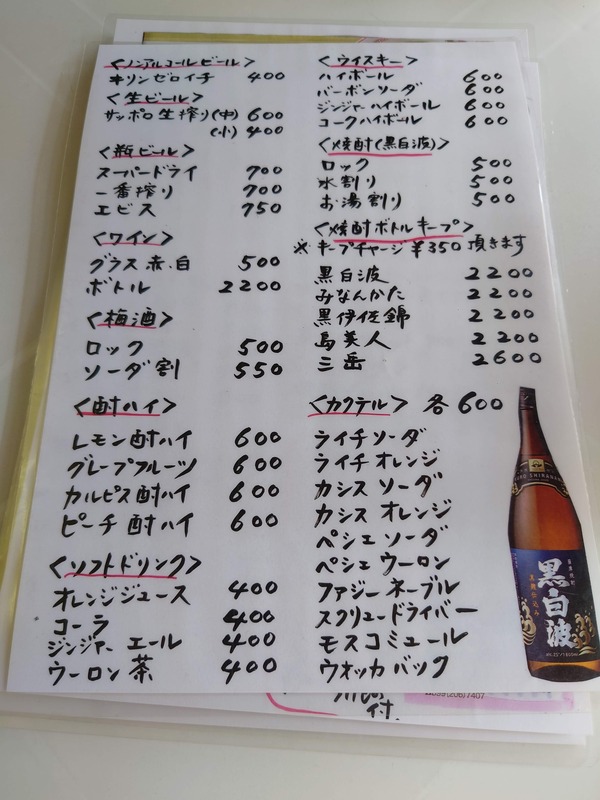 <ノンアルコールビール>
キリンゼロイチ 400
<生ビール>
サッポロ生搾り(中) 600
(小) 400
<瓶ビール>
スーパードライ 700
一番搾り 700
エビス 750
<ワイン>
グラス 赤.白 500
ボトル 2200
<梅酒>
ロック 500
ソーダ割 550
<酎ハイ>
レモン酎ハイ 600
グレープフルーツ 600
カルピス酎ハイ 600
ピーチ酎ハイ 600
<ソフトドリンク>
オレンジジュース 400
コーラ 400
ジンジャーエール 400
ウーロン茶 400
<ウイスキー>
ハイボール 600
バーボンソーダ 600
ジンジャーハイボール 600
コークハイボール 600
<焼酎(黒白波)>
ロック 500
水割り 500
お湯割り 500
<焼酎ボトルキープ>
※キープチャージ ¥350 頂きます
黒白波 2200
みなんかた 2200
黒伊佐錦 2200
島美人 2200
三岳 2600
<カクテル> 各600
ライチソーダ
ライチオレンジ
カシスソーダ
カシスオレンジ
ペシェソーダ
ペシェウーロン
ファジーネーブル
スクリュードライバー
モスコミュール
ウオッカバック
黒白波
付.